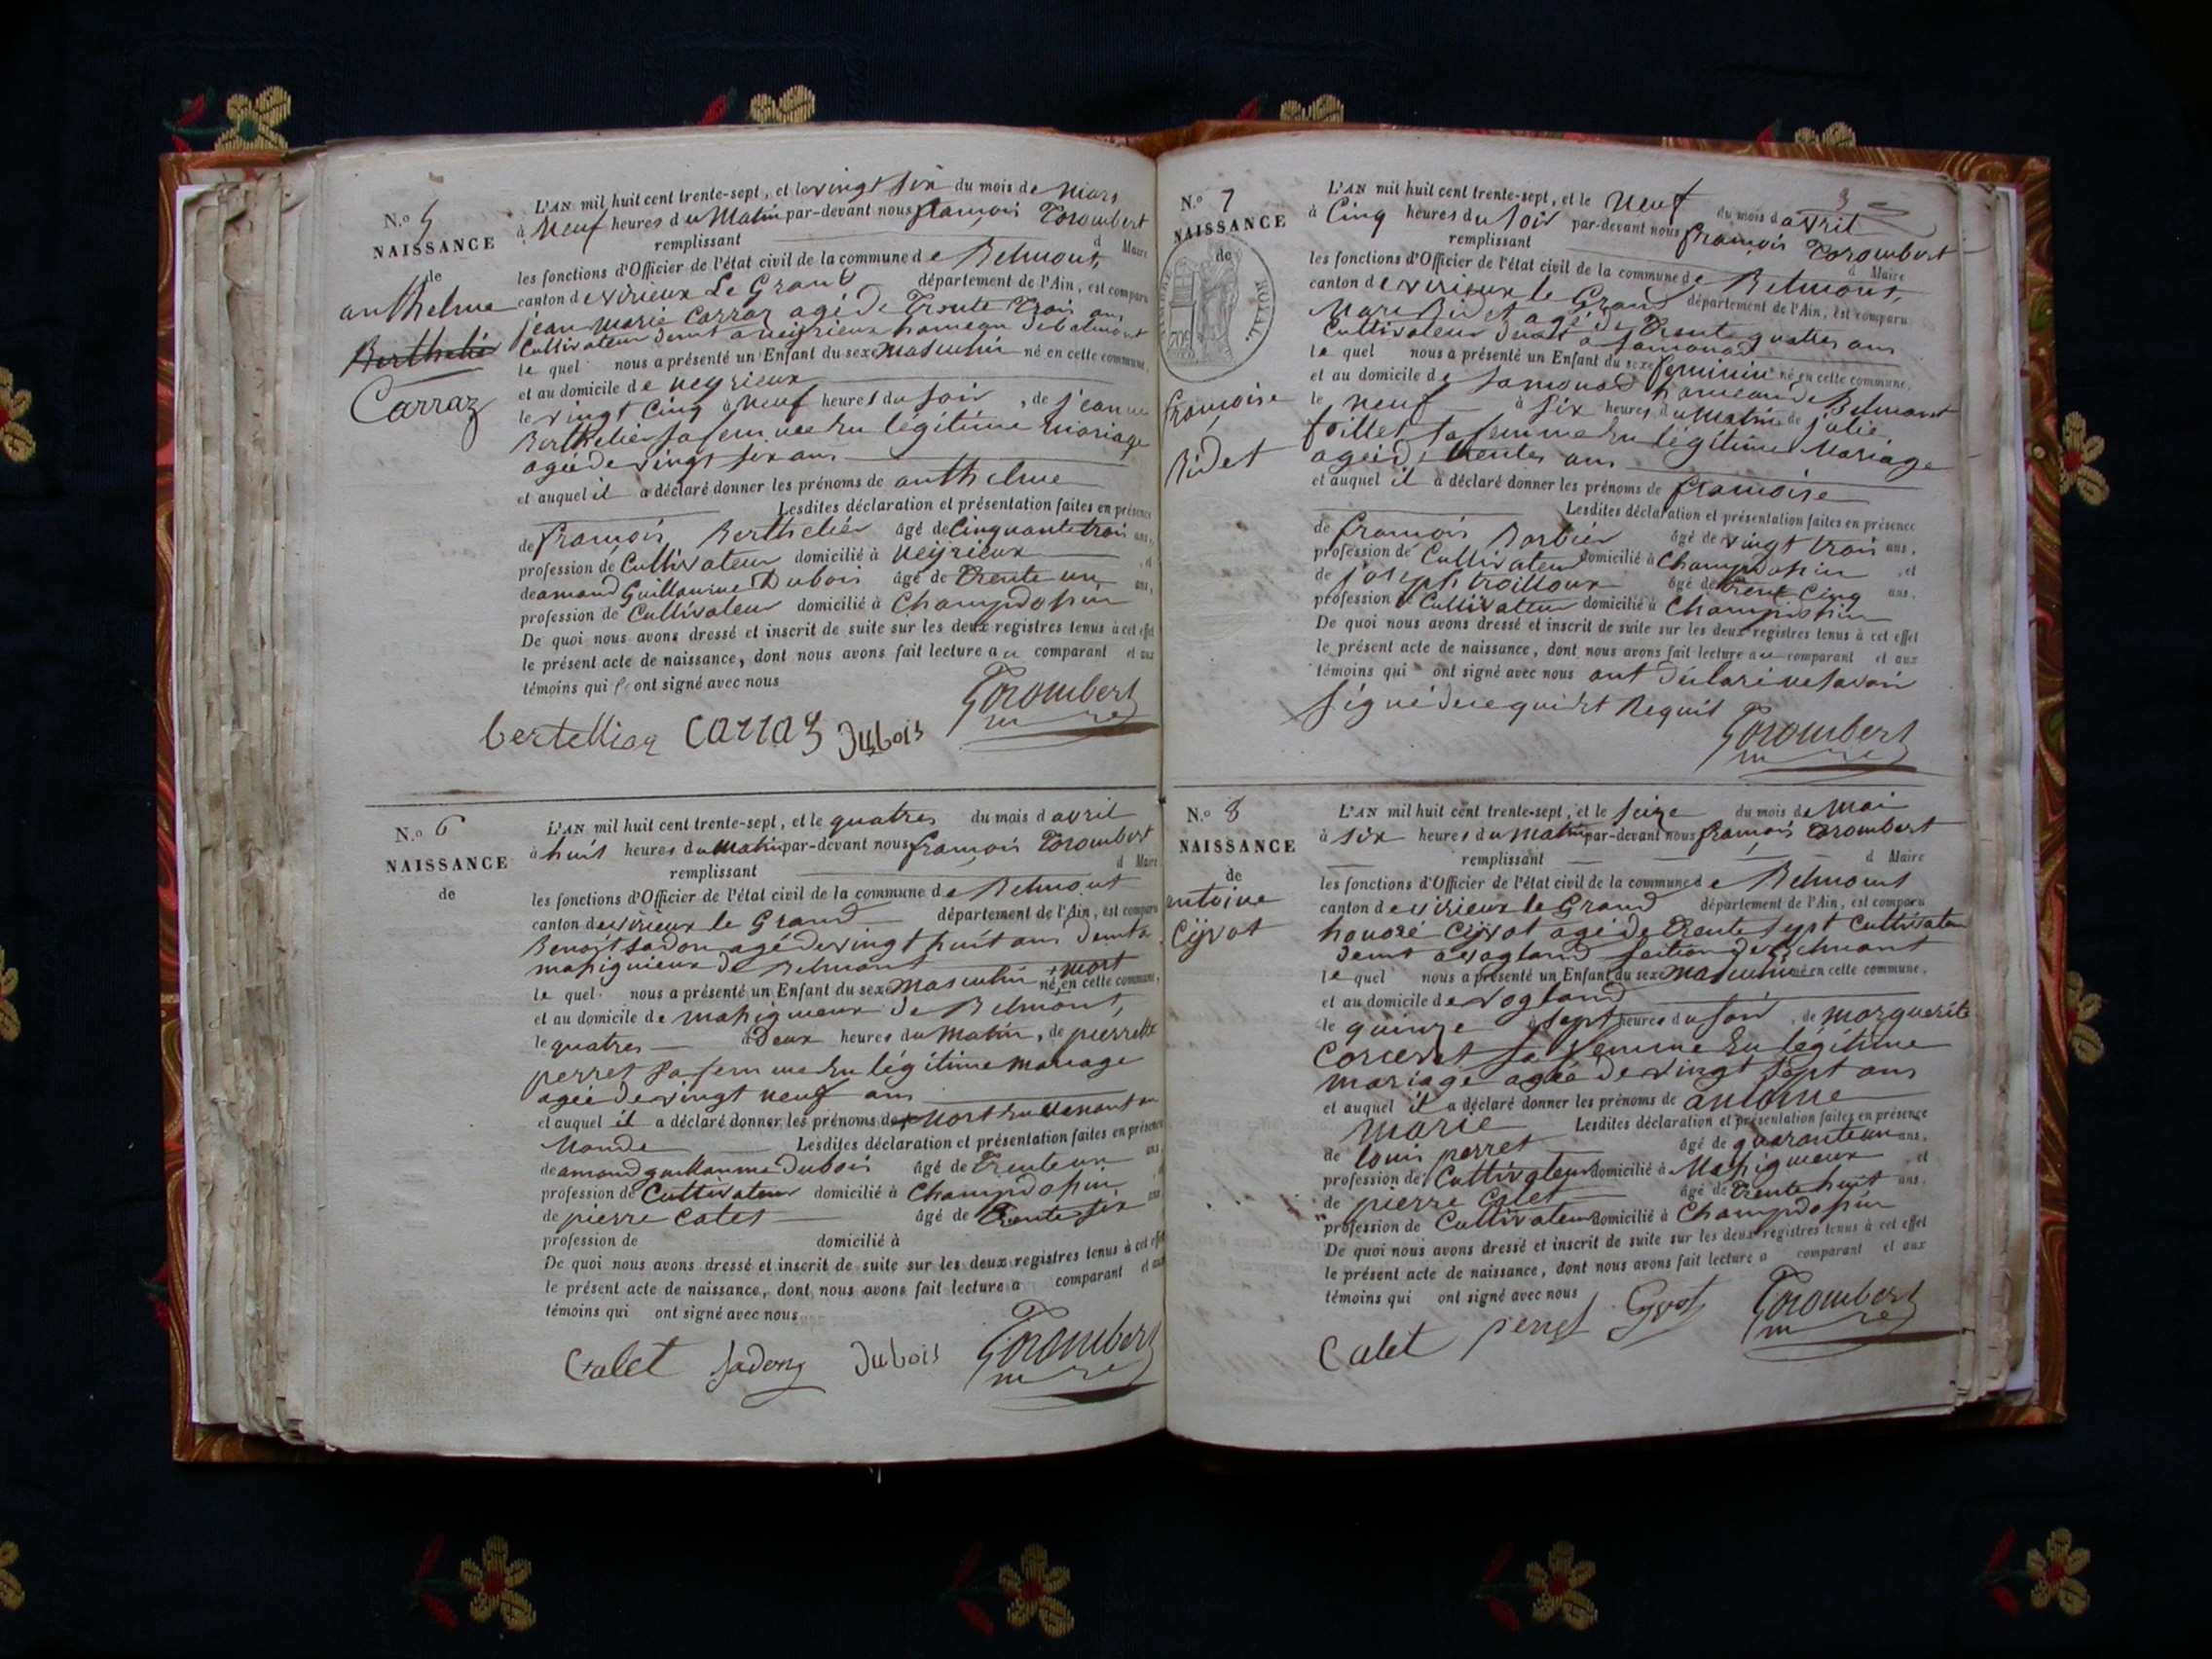 N.o 5
NAISSANCE
de
anthelme
Berthelier
Carraz
L'AN mil huit cent trente-sept, et le vingt six du mois de Mars
à Neuf heures du Matin par-devant nous françois Trombert
remplissant d Maire
les fonctions d'Officier de l'état civil de la commune de Belmont,
canton de virieux Le Grand département de l'Ain, est comparu
jean marie Carraz agé de Trente Trois ans
Cultivateur demt a neyrieux hameau de belmont
le quel nous a présenté un Enfant du sexe masculin né en cette commune,
et au domicile de neyrieux
le vingt Cinq à neuf heures du soir, de jeanne
Berthelier sa femme En légitime mariage
agée de vingt six ans
et auquel il a déclaré donner les prénoms de anthelme
Lesdites déclaration et présentation faites en présence
de françois Berthelier âgé de Cinquante trois ans,
profession de Cultivateur domicilié à neyrieux, et
de amand Guillaume Dubois âgé de Trente un ans,
profession de Cultivateur domicilié à Champdossin
De quoi nous avons dressé et inscrit de suite sur les deux registres tenus à cet effet
le présent acte de naissance, dont nous avons fait lecture au comparant et aux
témoins qui ont signé avec nous
bertellier Carraz Dubois Trombert
N.o 6
NAISSANCE
de
L'AN mil huit cent trente-sept, et le quatres du mois d avril
à huit heures du Matin par-devant nous françois Trombert
remplissant d Maire
les fonctions d'Officier de l'état civil de la commune de Belmont
canton de virieux le Grand département de l'Ain, est comparu
Benoit sadon agé de vingt huit ans demt a
massignieux de Belmont mort
le quel nous a présenté un Enfant du sexe masculin né en cette commune,
et au domicile de massigneux de Belmont,
le quatres à Deux heures du matin, de pierrette
perret sa femme En légitime mariage
agée de vingt neuf ans
et auquel il a déclaré donner les prénoms de Mort En Venant au
Monde Lesdites déclaration et présentation faites en présence
de amand guillaume Dubois âgé de Trente un ans,
profession de Cultivateur domicilié à Champdossin, et
de pierre Catet âgé de Trente six ans
profession de domicilié à
De quoi nous avons dressé et inscrit de suite sur les deux registres tenus à cet effet
le présent acte de naissance, dont nous avons fait lecture a comparant et aux
témoins qui ont signé avec nous
Calet sadon Dubois Trombert
3
N.o 7
NAISSANCE
de
TIMBRE ROYAL
70c
françoise
Bidet
L'AN mil huit cent trente-sept, et le Neuf du mois d avril
à Cinq heures du soir par-devant nous françois Trombert
remplissant d Maire
les fonctions d'Officier de l'état civil de la commune de Belmont,
canton de virieux le Grand département de l'Ain, est comparu
Marc Bidet agé de Trente quatres ans
Cultivateur demt a samonod
le quel nous a présenté un Enfant du sexe feminin né en cette commune,
et au domicile de samonod hameau de Belmont
le neuf à six heures du Matin de julie
foillet sa femme En légitime Mariage
agée de trentes ans
et auquel il a déclaré donner les prénoms de françoise
Lesdites déclaration et présentation faites en présence
de françois Barbier âgé de vingt trois ans,
profession de Cultivateur domicilié à Champdossin, et
de joseph troilloux âgé de trent Cinq ans,
profession de Cultivateur domicilié à Champdossin
De quoi nous avons dressé et inscrit de suite sur les deux registres tenus à cet effet
le présent acte de naissance, dont nous avons fait lecture au comparant et aux
témoins qui ont signé avec nous ont déclaré ne savoir
signé de ce quirt Requis Trombert
N.o 8
NAISSANCE
de
antoine
Cyvot
L'AN mil huit cent trente-sept, et le seize du mois de Mai
à six heures du Matin par-devant nous françois Trombert
remplissant d Maire
les fonctions d'Officier de l'état civil de la commune de Belmont
canton de virieux le Grand département de l'Ain, est comparu
honoré Cyvot agé de Trente sept Cultivateur
demt a vogland section de Belmont
le quel nous a présenté un Enfant du sexe masculin né en cette commune,
et au domicile de vogland
le quinze à sept heures du soir, de marguerite
Corceret sa femme En légitime
mariage agée de vingt sept ans
et auquel il a déclaré donner les prénoms de antoine
marie Lesdites déclaration et présentation faites en présence
de louis perret âgé de quarante un ans,
profession de Cultivateur domicilié à Massigneux, et
de pierre Calet âgé de Trente huit ans,
profession de Cultivateur domicilié à Champdossin
De quoi nous avons dressé et inscrit de suite sur les deux registres tenus à cet effet
le présent acte de naissance, dont nous avons fait lecture a comparant et aux
témoins qui ont signé avec nous
Calet perret Cyvot Trombert